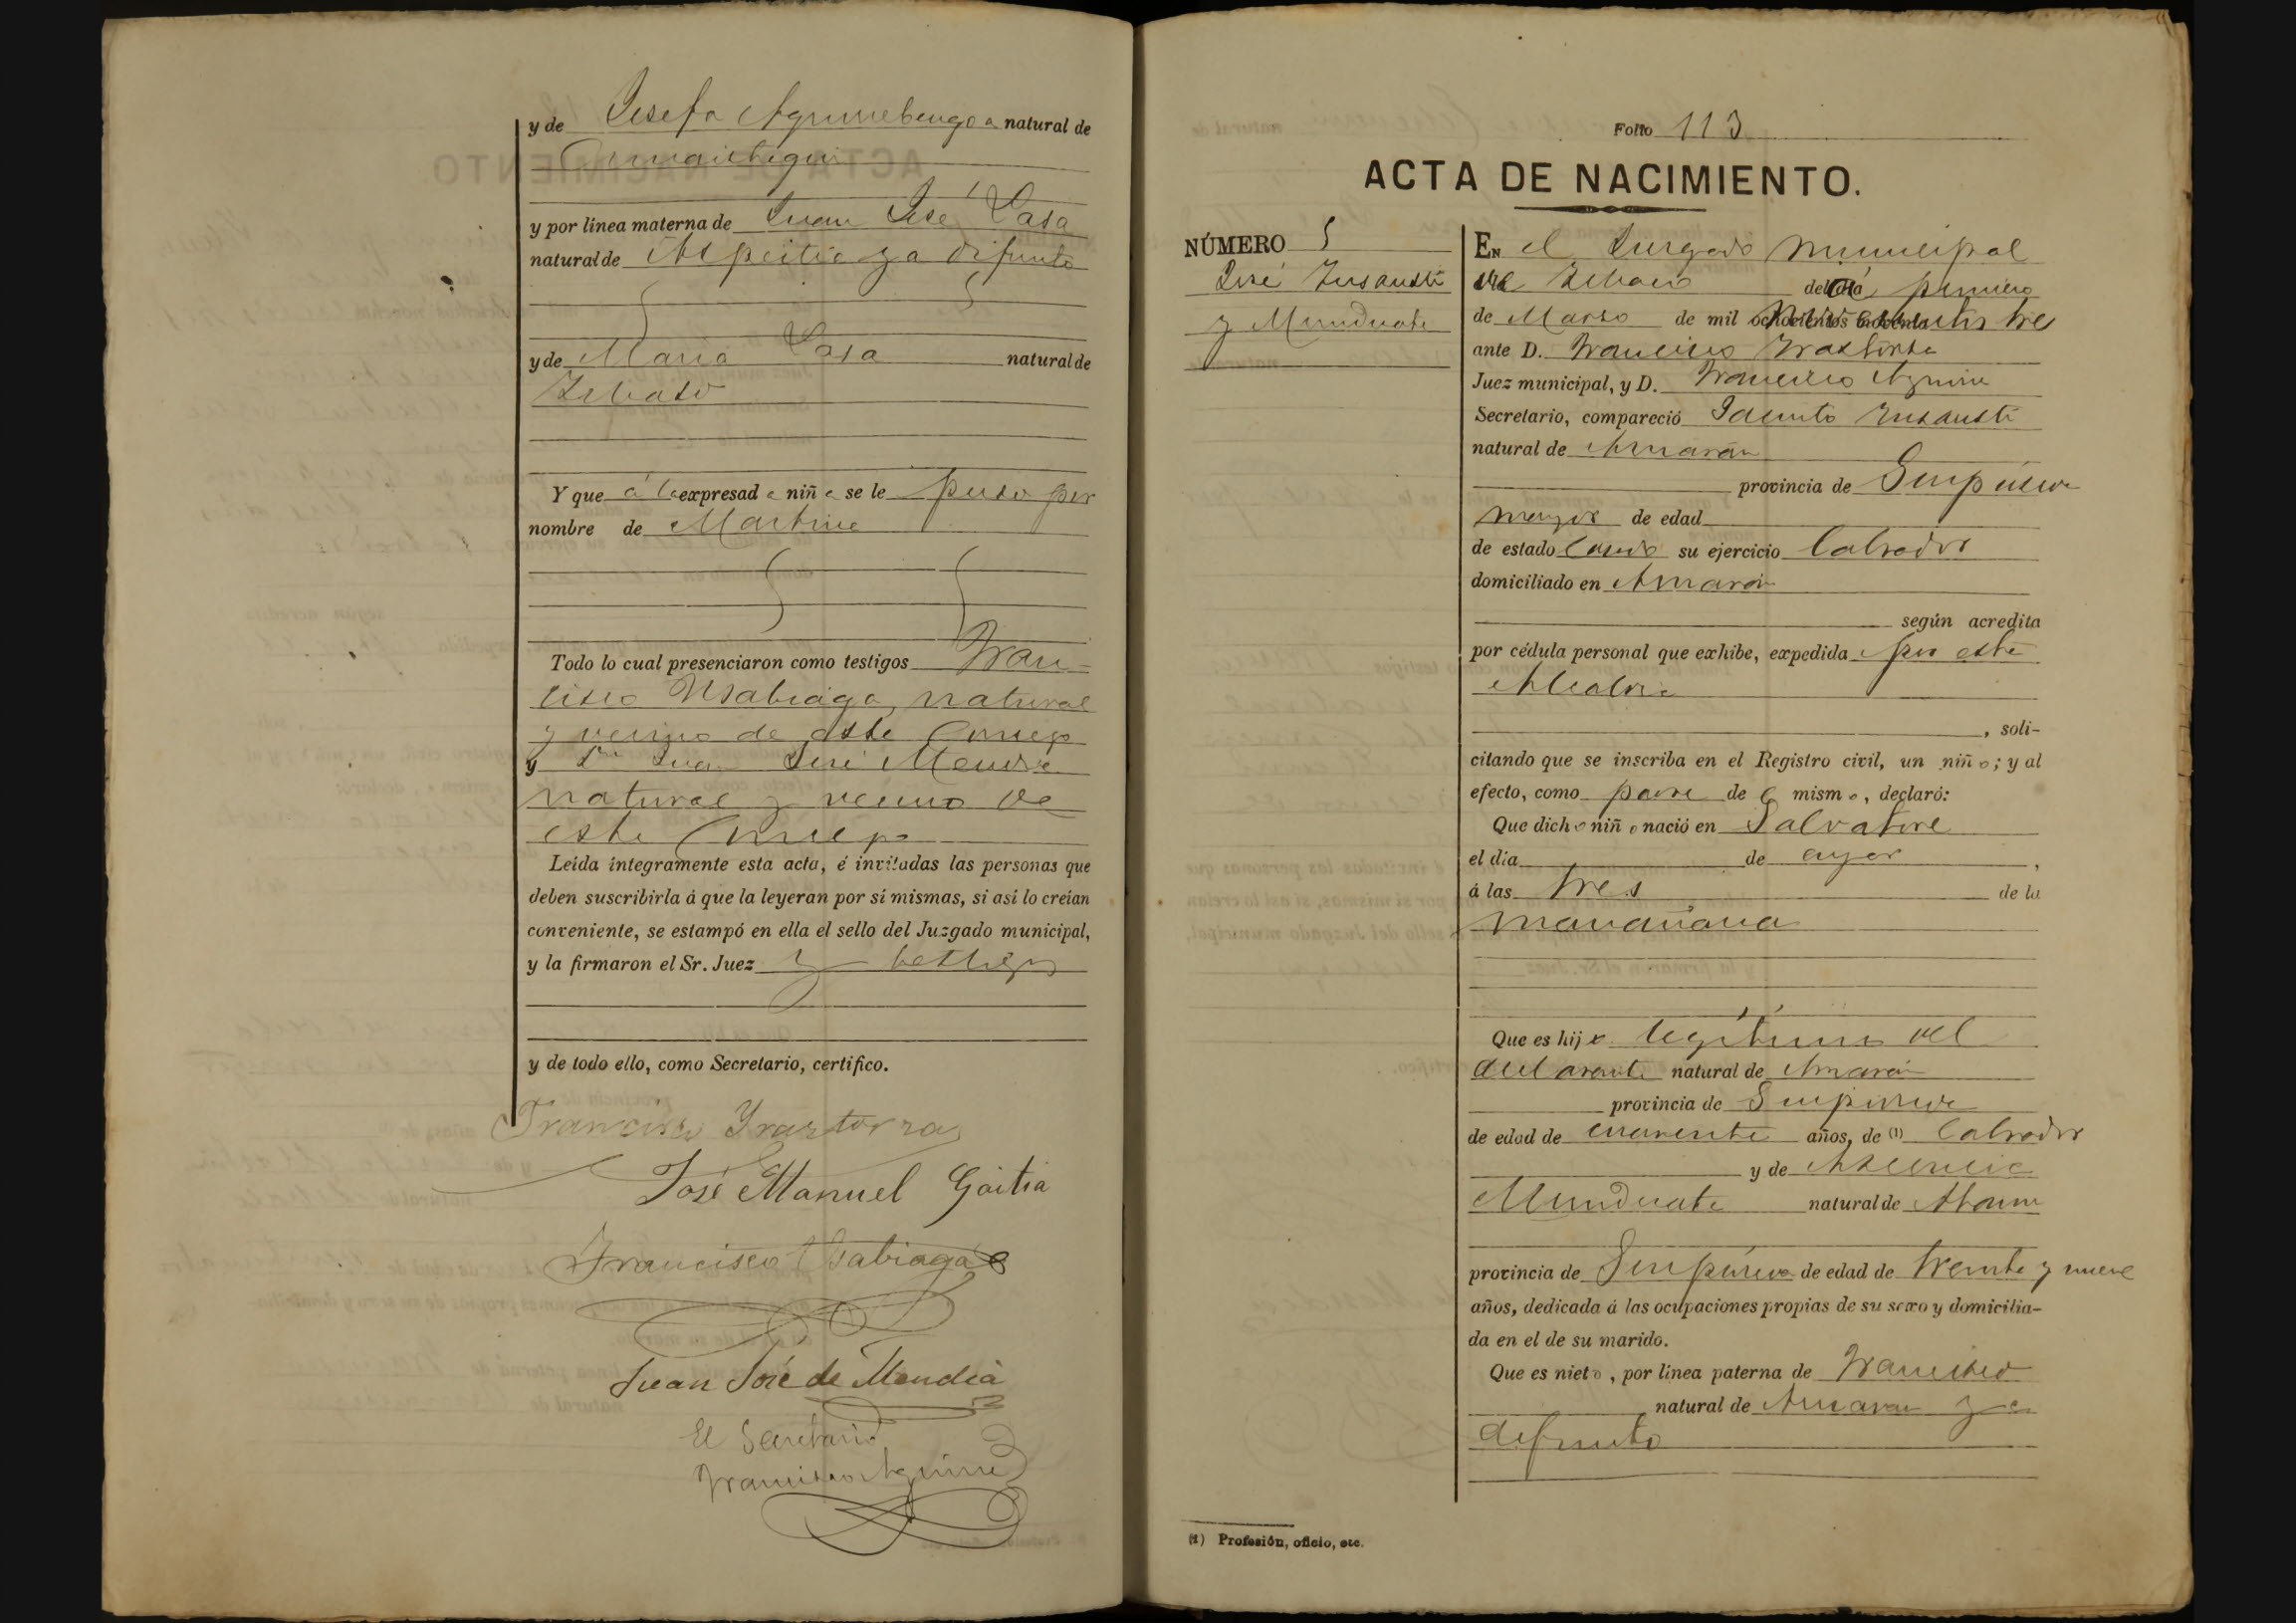 y de Josefa natural de
y por línea materna de Juan José Lasa
natural de Azpeitia ya difunto
y de Maria Lasa natural de
Y que á la expresada niña se le puso por
nombre de Martina
Todo lo cual presenciaron como testigos Fran-
cisco Usabiaga, natural
y vecino de este Concejo
y Dn Juan José Mendia
natural y vecino de
este Concejo
Leida íntegramente esta acta, é invitadas las personas que
deben suscribirla á que la leyeran por sí mismas, si así lo creían
conveniente, se estampó en ella el sello del Juzgado municipal,
y la firmaron el Sr. Juez y testigos
y de todo ello, como Secretario, certifico.
Francisco Yraztorza
José Manuel Goitia
Francisco Usabiaga
Juan José de Mendia
El Secretario
Francisco Aguirre
Folio 113
ACTA DE NACIMIENTO.
NÚMERO 5
José Insausti
y Munduate
EN el Jurgado Municipal
de primero
de Marzo de mil novecientos tres
ante D. Francisco Iraztorza
Juez municipal, y D. Francisco Aguirre
Secretario, compareció Jacinto Insausti
natural de Amarán
provincia de Guipúzcoa
mayor de edad
de estado casado su ejercicio labrador
domiciliado en Amarán
según acredita
por cédula personal que exhibe, expedida por esta
Alcaldia
, soli-
citando que se inscriba en el Registro civil, un niño; y al
efecto, como padre de el mismo, declaró:
Que dicho niño nació en Salvatore
el día de ayer,
á las tres de la
manañana
Que es hijo legitimo del
declarante natural de Amarán
provincia de Guipúzcoa
de edad de cuarenta años, de (1) labrador
y de Ascencia
Munduate natural de Ataun
provincia de Guipúzcoa de edad de treinta y nueve
años, dedicada á las ocupaciones propias de su sexo y domicilia-
da en el de su marido.
Que es nieto, por línea paterna de Francisco
natural de Amarán ya
difunto
(1) Profesión, oficio, etc.